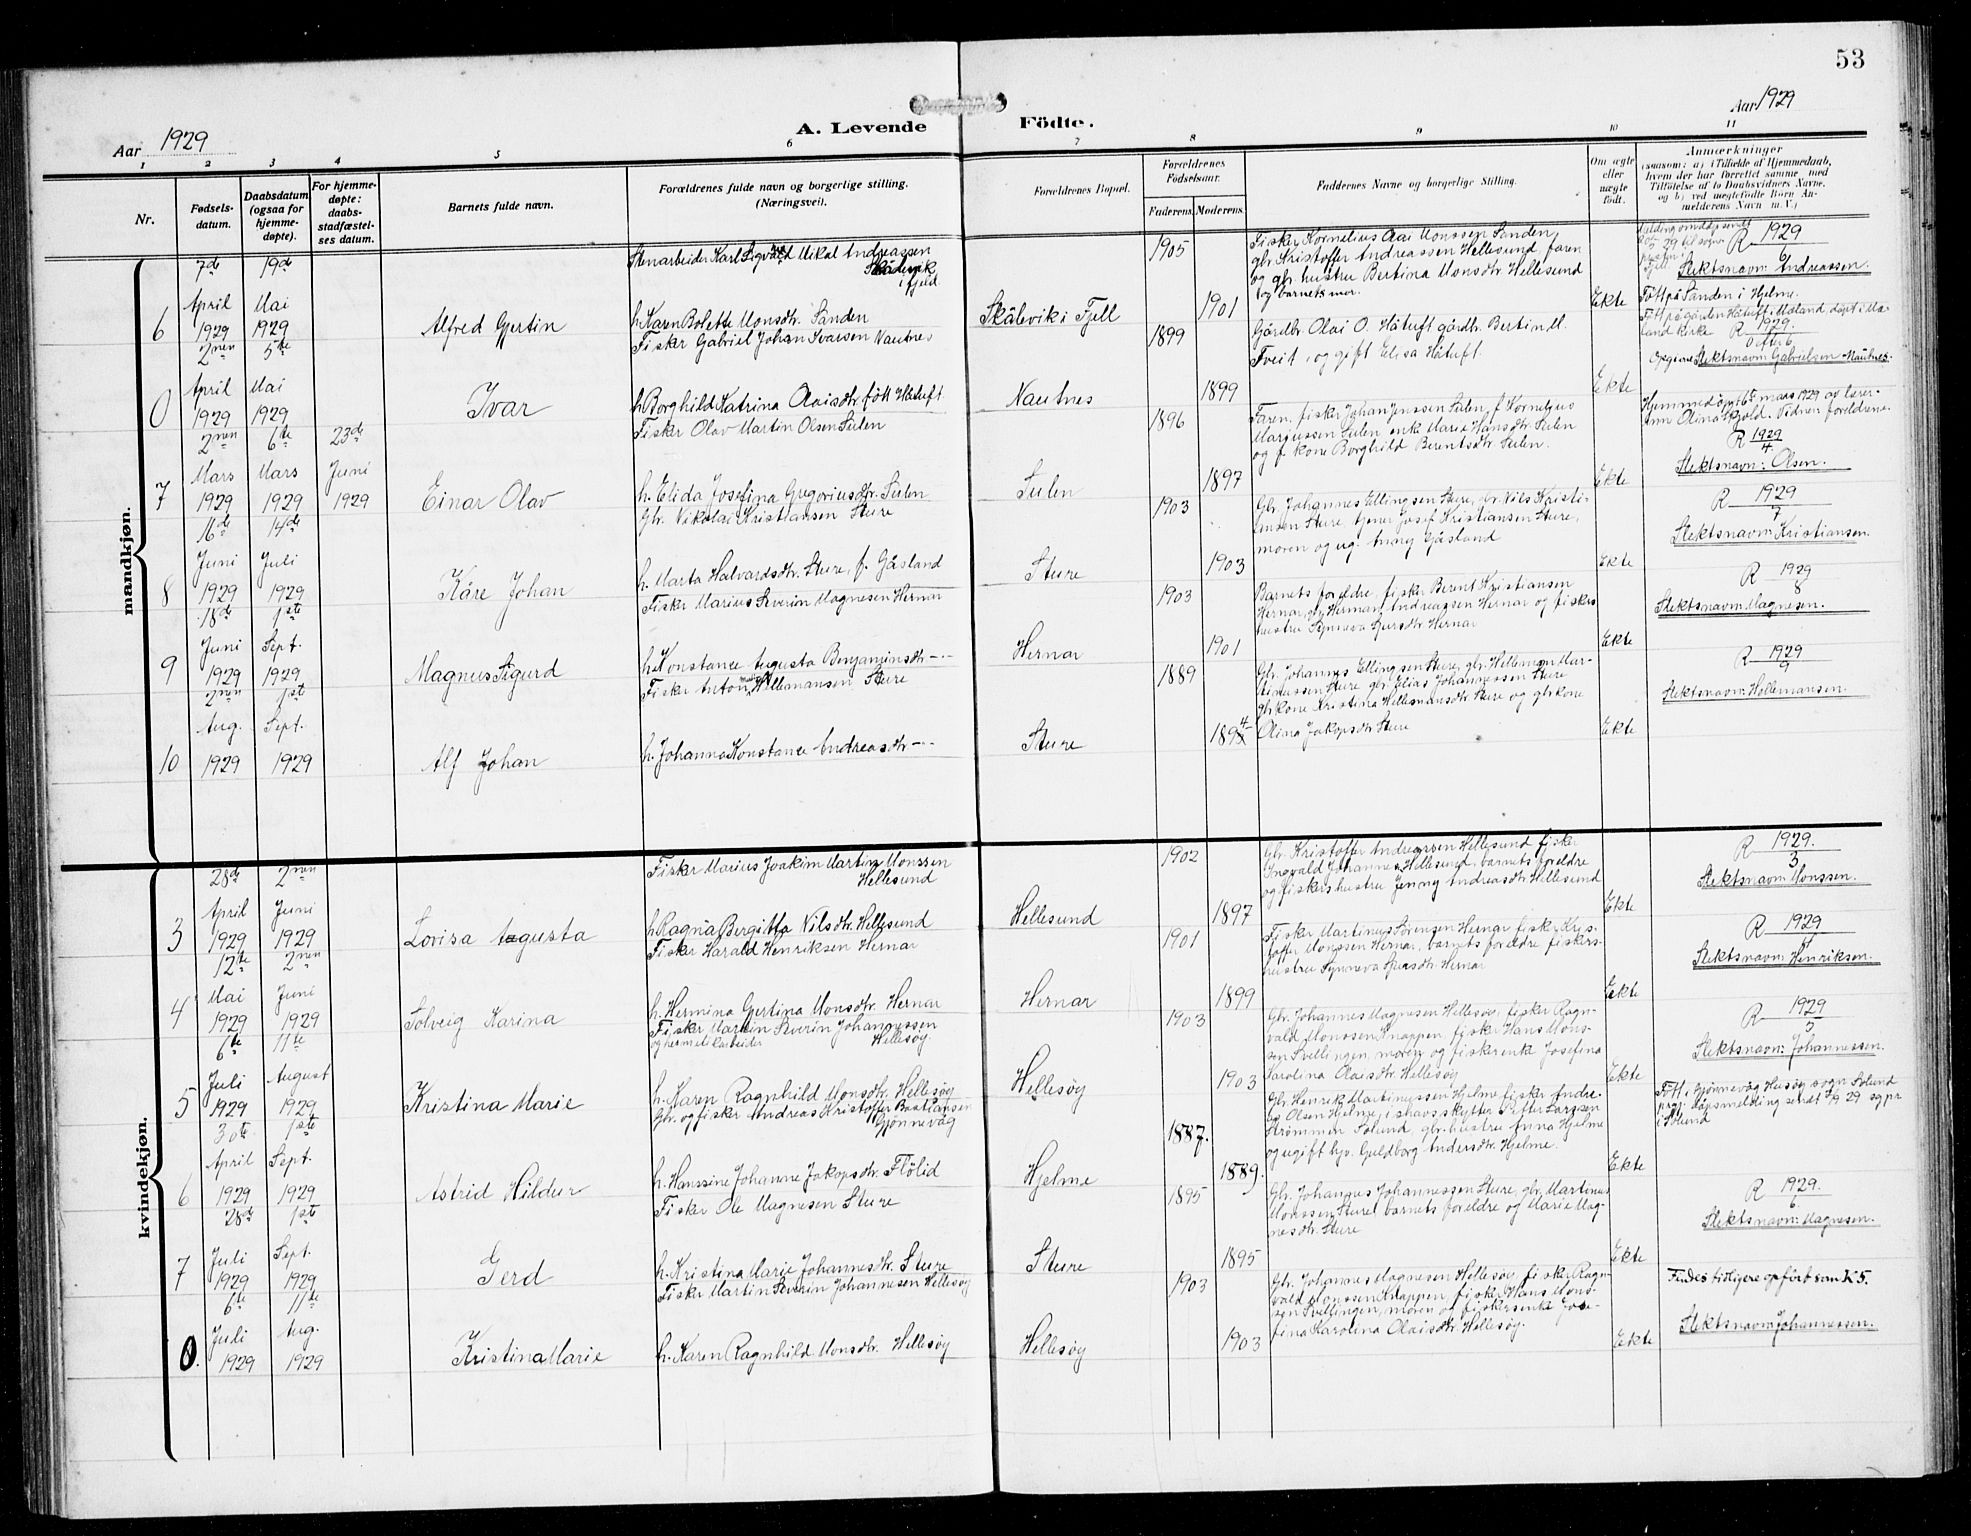 53
Aar 1929
A. Levende Födte.
Aar 1929
1 2 3 4 5 6 7 8 9 10 11
Nr.
Fødsels-
datum.
Daabsdatum
(ogsaa for
hjemme-
døpte).
For hjemme-
døpte:
daabs-
stadfæstel-
ses datum.
Barnets fulde navn.
Forældrenes fulde navn og borgerlige stilling.
(Næringsvei).
Forældrenes Bopæl.
Forældrenes
Fødselsaar.
Faderens. Moderens.
Faddernes Navne og borgerlige Stilling.
Om ægte
eller
uægte
født.
Anmærkninger
(saasom: a) i Tilfælde af Hjemmedaab,
hvem der har forrettet samme, med
Tilföielse af to Daabsvidners Navne,
og b) ved uægtefödte Börn An-
melderens Navn m. V.)
mandkjøn.
6
7de April 1929
19de Mai 1929
Alfred Gjertin
Stenarbeider Karl Sigvald Mikal Andreassen
Skålevik
i Fjeld
h. Karen Bolette Monsdtr. Sanden
Skålevik i Fjell
1905
1901
Fisker Kornelius Olai Monssen Sanden,
gbr. Kristoffer Andreassen Hellesund, faren
og gbr. hustru Bertina Monsdtr. Hellesund
og barnets mor.
Ekte
R 1929/7
Slektsnavn: Andreassen.
Født på Sanden i Hjelme
0
2nen April 1929
5te Mai 1929
Ivar
Fisker Gabriel Johan Ivarsen Nautnes
h. Borghild Katrina Olaisdtr. født Håtuft
Nautnes
1899
1899
Gårdbr. Olai O. Håtuft gårdbr. Bertin M.
Tveit, og gift Elisa Håtuft.
Ekte
Født på gården Håtuft i Meland, døpt i Me-
land kirke R 1929.
Slektsnavn: Gabrielsen - Nautnes.
7
2nen Mars 1929
6te Mars 1929
23de Juni 1929
Einar Olav
Fisker Olav Martin Olsen Sulen
h. Elida Josefina Gregoriusdtr. Sulen
Sulen
1896
1897
Faren, fisker Johan Jenssen Sulen, f. Kornelius
Markussen Sulen, enke Marie Hansdtr. Sulen
og f. kone Borghild Berentsdtr. Sulen.
Ekte
Hjemmedøpt 6te mars 1929 av lærer-
inne Olina Skjold. Vidner: foreldrene.
R 1929/4
Slektsnavn: Olsen.
8
16de Juni 1929
14de Juli 1929
Kåre Johan
Gbr. Nikolai Kristiansen Sture
h. Marta Halvardsdtr. Sture, f. Gåsland
Sture
1903
1903
Gbr. Johannes Ellingsen Sture, gbr. Nils Kristi-
ansen Sture, tjener Josef Kristiansen Sture,
moren og ug. Anny Gåsland
Ekte
R 1929/7
Slektsnavn: Kristiansen.
9
18de Juni 1929
1ste Sept. 1929
Magnus Sigurd
Fisker Marius Severin Magnesen Hernar
h. Konstance Augusta Benjaminsdtr —..
Hernar
1903
1901
Barnets foreldre, fisker Berent Kristiansen
Hernar, gbr. Herman Andreassen Hernar og fiskers
hustru Synneva Sjursdtr. Hernar
Ekte
R 1929/8
Slektsnavn: Magnesen.
10
2nen Aug. 1929
1ste Sept. 1929
Alf Johan
Fisker Anton Hellemansen Sture
h. Johanna Konstance Andreasdtr —..
Sture
1889
1894
Gbr. Johannes Ellingsen Sture, gbr. Helleman Mar-
tinussen Sture, gbr. Elias Johannessen Sture
gbrkone Kristina Hellemansdtr. Sture og gbrkone
Olina Jakopsdtr. Sture
Ekte
R 1929/9
Slektsnavn: Hellemansen.
kvindekjøn.
3
28de April 1929
2nen Juni 1929
Lovisa Augusta
Fisker Marius Joakim Martin Monssen
Hellesund
h. Ragna Bergitta Nilsdtr. Hellesund
Hellesund
1902
1897
Gbr. Kristoffer Andreassen Hellesund fisker
Ingvald Johannes Hellesund, barnets foreldre
og fiskers hustru Jenny Andreasdtr. Hellesund
Ekte
R 1929./3
Slektsnavn: Monssen.
4
12te Mai 1929
2nen Juni 1929
Solveig Karina
Fisker Harald Henriksen Hernar
h. Hermina Gjertina Monsdtr. Hernar
Hernar
1901
1899
Fisker Martinus Sörensen Hernar fisker Kris-
toffer Monssen Hernar, barnets foreldre fiskers-
hustru Synneva Sjursdtr. Hernar
Ekte
R 1929/4
Slektsnavn: Henriksen.
5
6te Juli 1929
11te August 1929
Kristina Marie
Fisker Martin Severin Johannessen
og hermetikarbeider Hellesøy.
h. Karen Ragnhild Monsdtr. Hellesøy
Hellesøy
1903
1903
Gbr. Johannes Magnesen Hellesøy, fisker Ragn-
vald Monssen Knappen, fisker Hans Mons-
sen Svellingen, moren og fiskerenke Josefina
Karolina Olaisdtr. Hellesøy
Ekte
R 1929/5
Slektsnavn: Johannessen.
6
30te April 1929
1ste Sept. 1929
Astrid Hildur
Gbr. og fisker Andreas Kristoffer Bastiansen
Gjønnevåg
h. Hanssine Johanne Jakopsdtr. Flölid
Hjelme
1887.
1889.
Gbr. Henrik Martinussen Hjelme fisker Andre-
as Olsen Hjelme, ishavsskytter Peter Larssen
Strømmen Solund, gbr. hustru Anna Hjelme
og ugift hjv. Guldborg Andersdtr. Hjelme.
Ekte
Født i Gjønnevåg Husøy sogn Solund
prgj.
i Solund
7
28de Juli 1929
1ste Sept. 1929
Gerd
Fisker Ole Magnesen Sture
h. Kristina Marie Johannesdtr. Sture
Sture
1895
1895
Gbr. Johannes Johannessen Sture, gbr. Martinus
Monssen Sture, barnets foreldre og Marie Mag-
nesdtr. Sture
Ekte
R 1929./6
Slektsnavn: Magnesen.
0.
6te Juli 1929
11te Aug. 1929
Kristina Marie
Fisker Martin Severin Johannesen Hellesøy
h. Karen Ragnhild Monsdtr. Hellesøy
Hellesøy
1903
1903
Gbr. Johannes Magnesen Hellesøy, fisker Ragn-
vald Monssen Knappen, fisker Hans Mons-
sen Svellingen, moren og fiskersenke Jose-
fina Karolina Olaisdtr. Hellesøy.
Ekte
Findes tidligere opført som K 5.
Slektsnavn: Johannessen.